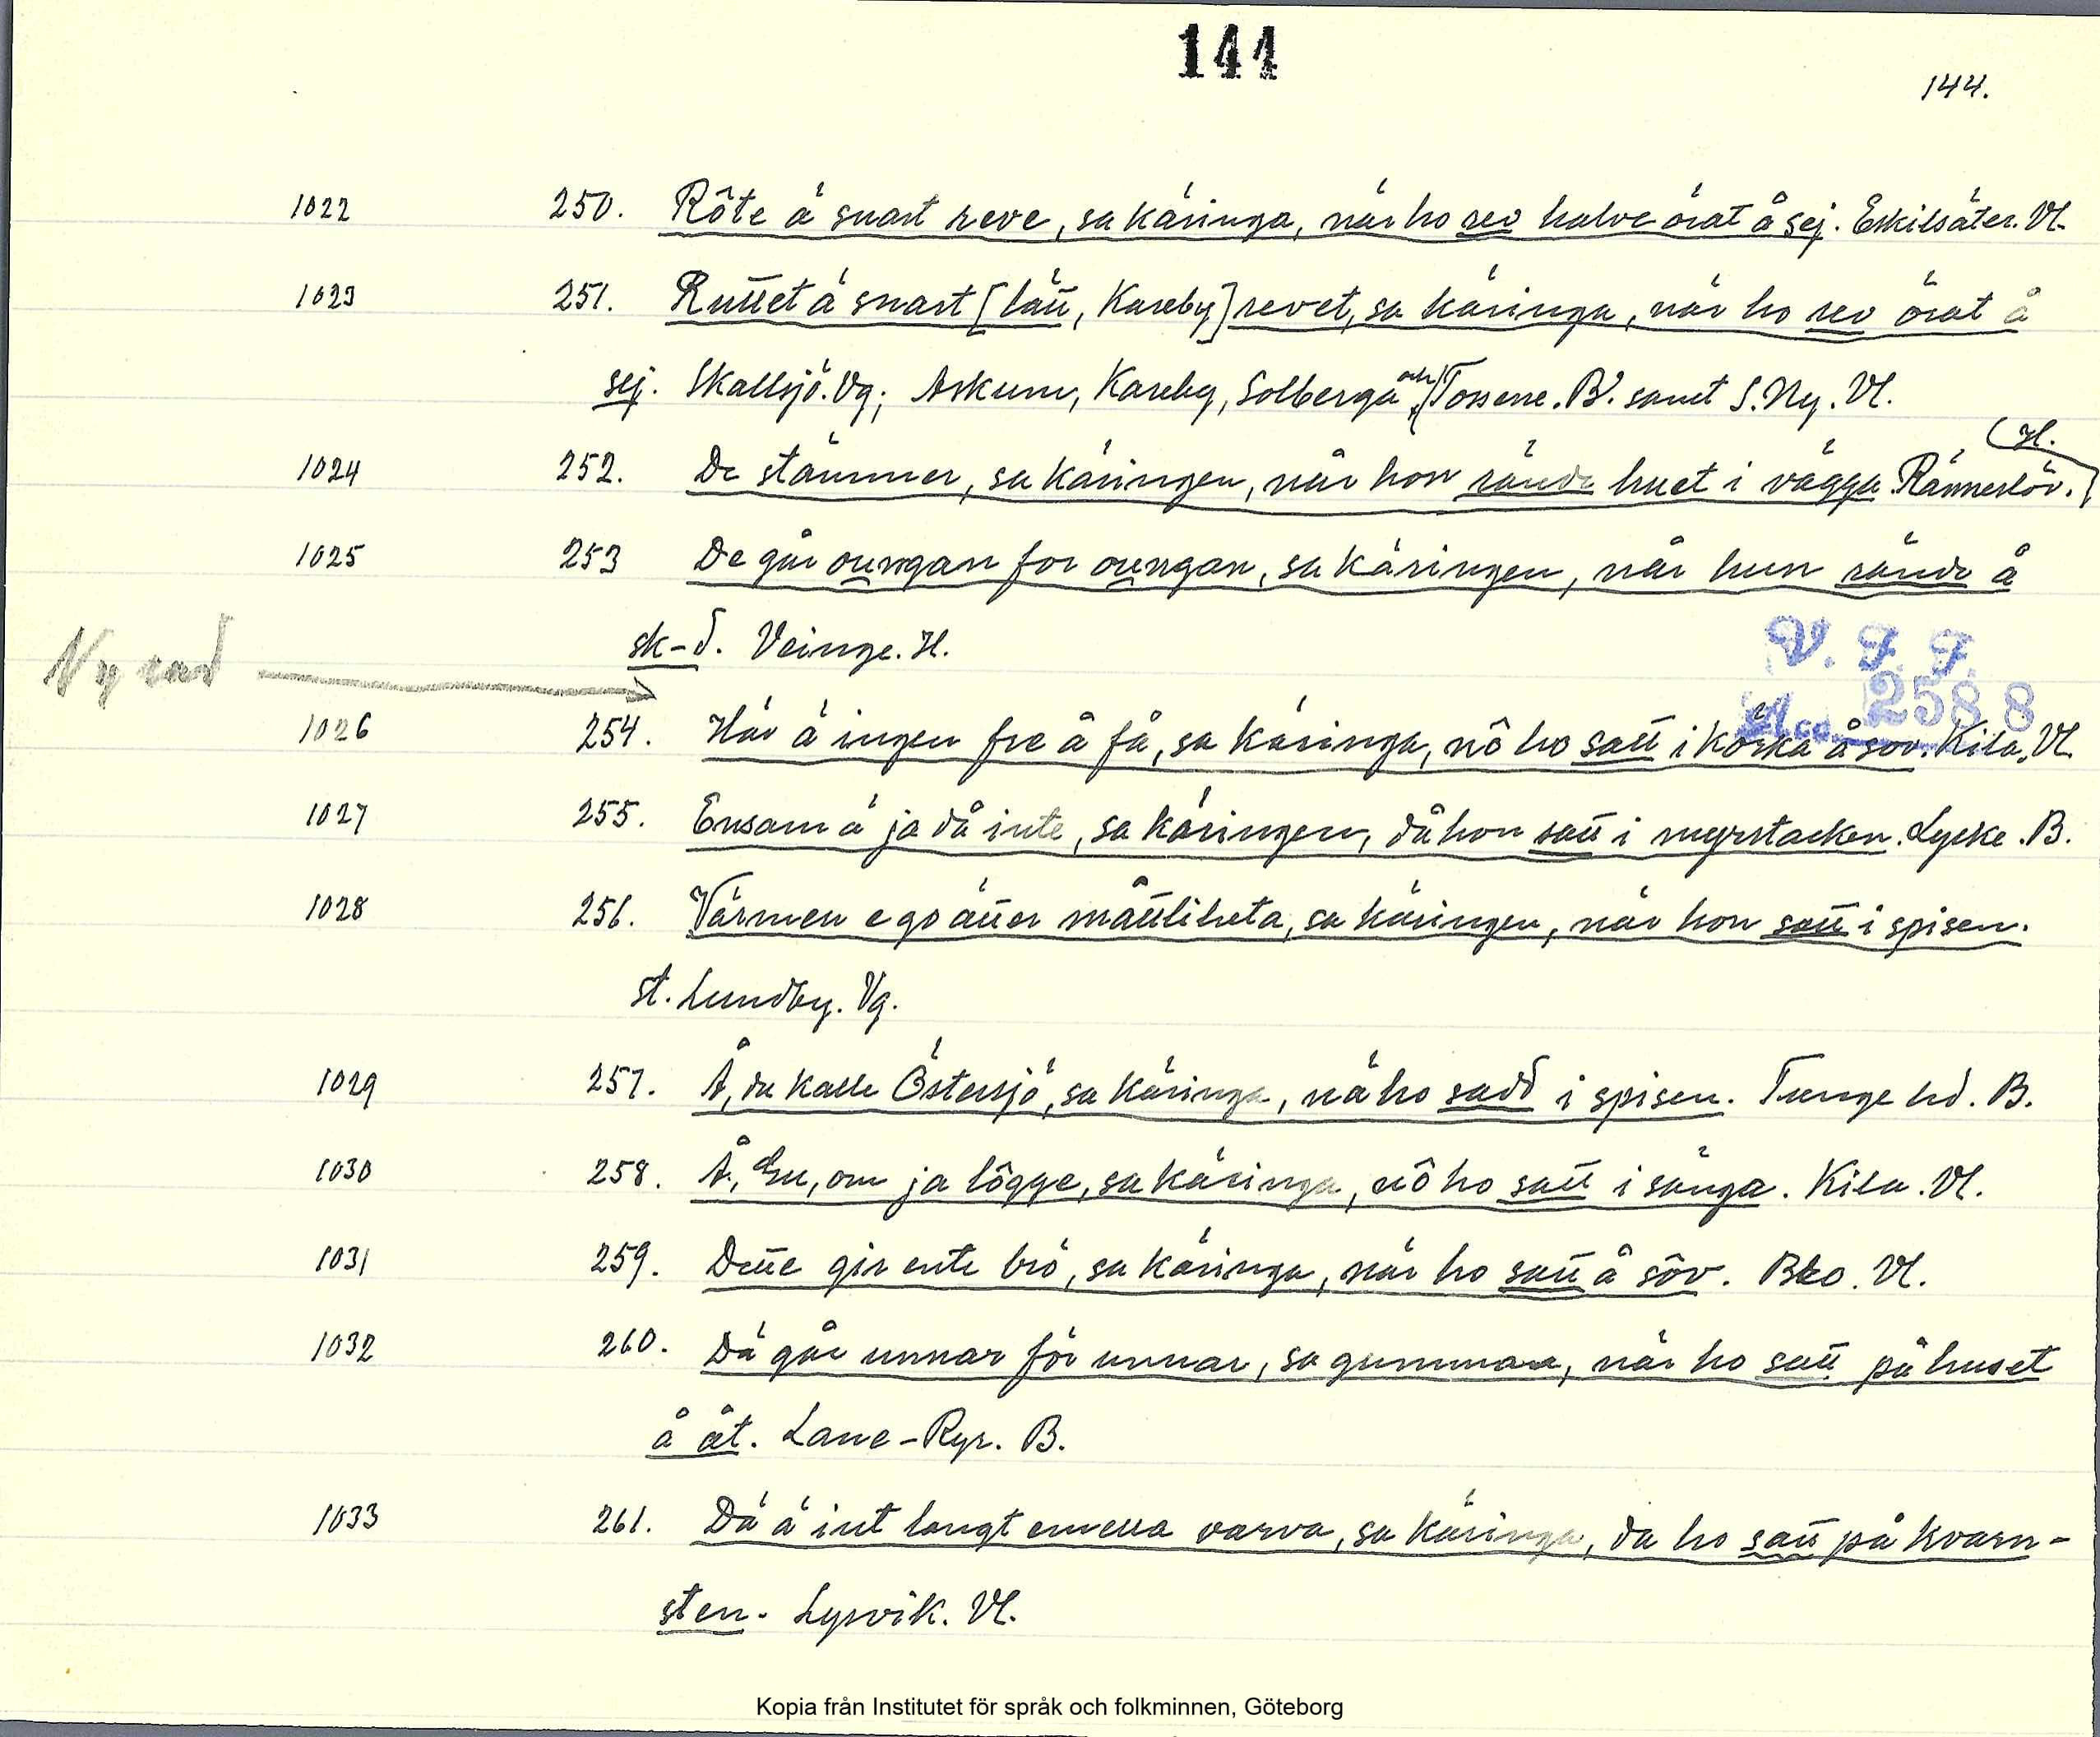 144
144.
1022 250. Rôte ä snart reve, sa käringa, när ho rev halve örat å sej. Eskilsäter. Vl.
1023 251. Ruttet ä snart [lätt, Kareby] revet, sa käringa, när ho rev örat å
sej. Skallsjö. Vg; Askum, Kareby, Solberga och Tossene. B. samt S. Ny. Vl.
1024 252. De stämmer, sa käringen, når hon rände huet i vägga. Rännerslöv. H.
1025 253 De går oungan for oungan, sa käringen, når hun rände å
sk-d. Veinge. H.
Ny rad
V. F. F.
Acc. 2588
1026 254. Här ä ingen fre å få, sa käringa, nô ho satt i körka å sov. Kila. Vl.
1027 255. Ensam ä ja då inte, sa käringen, då hon satt i myrstacken. Lycke. B.
1028 256. Värmen e go ätter måttliheta, sa käringen, när hon satt i spisen.
st. Lundby. Vg.
1029 257. Å, du kalle Östersjö, sa käringa, nä ho sadd i spisen. Tunge hd. B.
1030 258. Å, Gu, om ja lôgge, sa käringa, nô ho satt i sänga. Kila. Vl.
1031 259. Dette gir ente brö, sa käringa, när ho satt å sôv. Bro. Vl.
1032 260. Dä går unnar för unnar, sa gumman, när ho satt på huset
å åt. Lane-Ryr. B.
1033 261. Dä ä int langt emella varva, sa käringa, da ho satt på kvarn-
sten. Lysvik. Vl.
Kopia från Institutet för språk och folkminnen, Göteborg